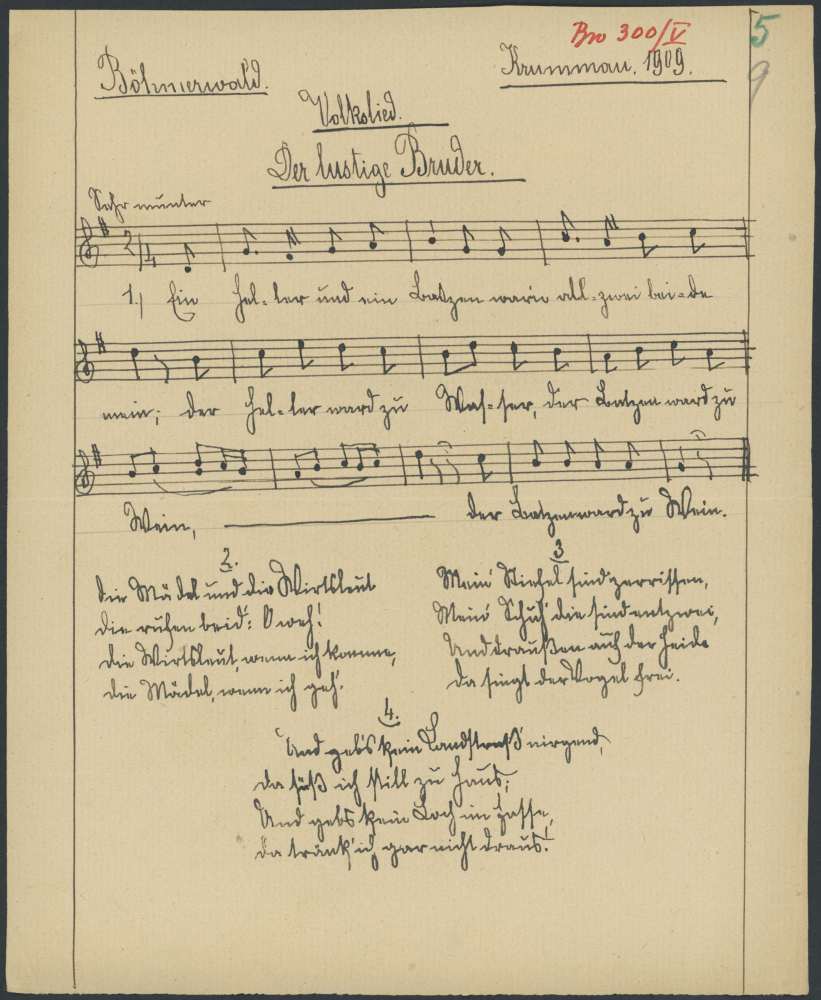 Bro 300/V
5
9
Böhmerwald.
Krummau. 1909.
Volkslied.
Der lustige Bruder.
Sehr munter
2/4
1.) Ein Hel-ler und ein Batzen warn all-zwei bei-de
mein; der Hel-ler ward zu Was-ser, der Batzen ward zu
Wein, der Batzen ward zu Wein.
2.
Die Mädel und die Wirtsleut
die rufen beid': O weh!
die Wirtsleut, wenn ich komme,
die Mädel, wenn ich geh'.
3
Mein' Stiefel sind zerrissen,
Meine Schuh' die sind entzwei,
Und draußen auf der Heide
Da singt der Vogel frei.
4.
Und gebs kein Landstraß' nirgend,
da säß ich still zu Haus;
Und gebs kein Loch im Fasse,
da tränk' ich gar nicht draus!